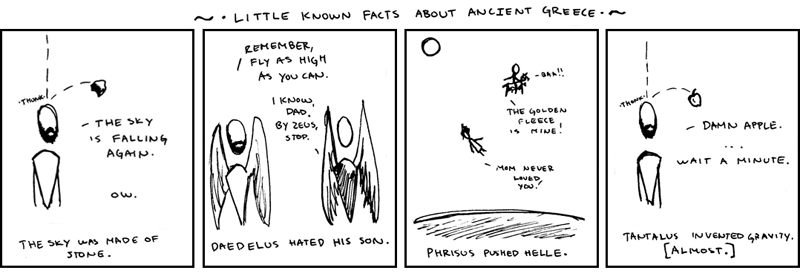 ~ · LITTLE KNOWN FACTS ABOUT ANCIENT GREECE · ~
·THUNK·
- THE SKY
IS FALLING
AGAIN.
OW.
THE SKY WAS MADE OF
STONE.
REMEMBER,
FLY AS HIGH
AS YOU CAN.
I KNOW,
DAD.
BY ZEUS,
STOP.
DAEDELUS HATED HIS SON.
- BAA!!
THE GOLDEN
FLEECE
IS MINE!
MOM NEVER
LOVED
YOU!
PHRISUS PUSHED HELLE.
·THUNK·
- DAMN APPLE.
...
WAIT A MINUTE.
TANTALUS INVENTED GRAVITY.
[ALMOST.]